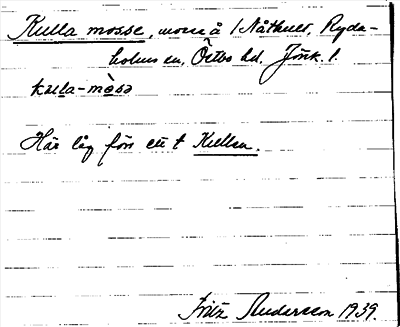 Kulla mosse, mosse å 1 Nåthult, Ryda-
holms sn, Östbo hd. Jönk. l.
kula-mòsə
Här låg förr ett t Kullen.
Fritz Andersson 1939.